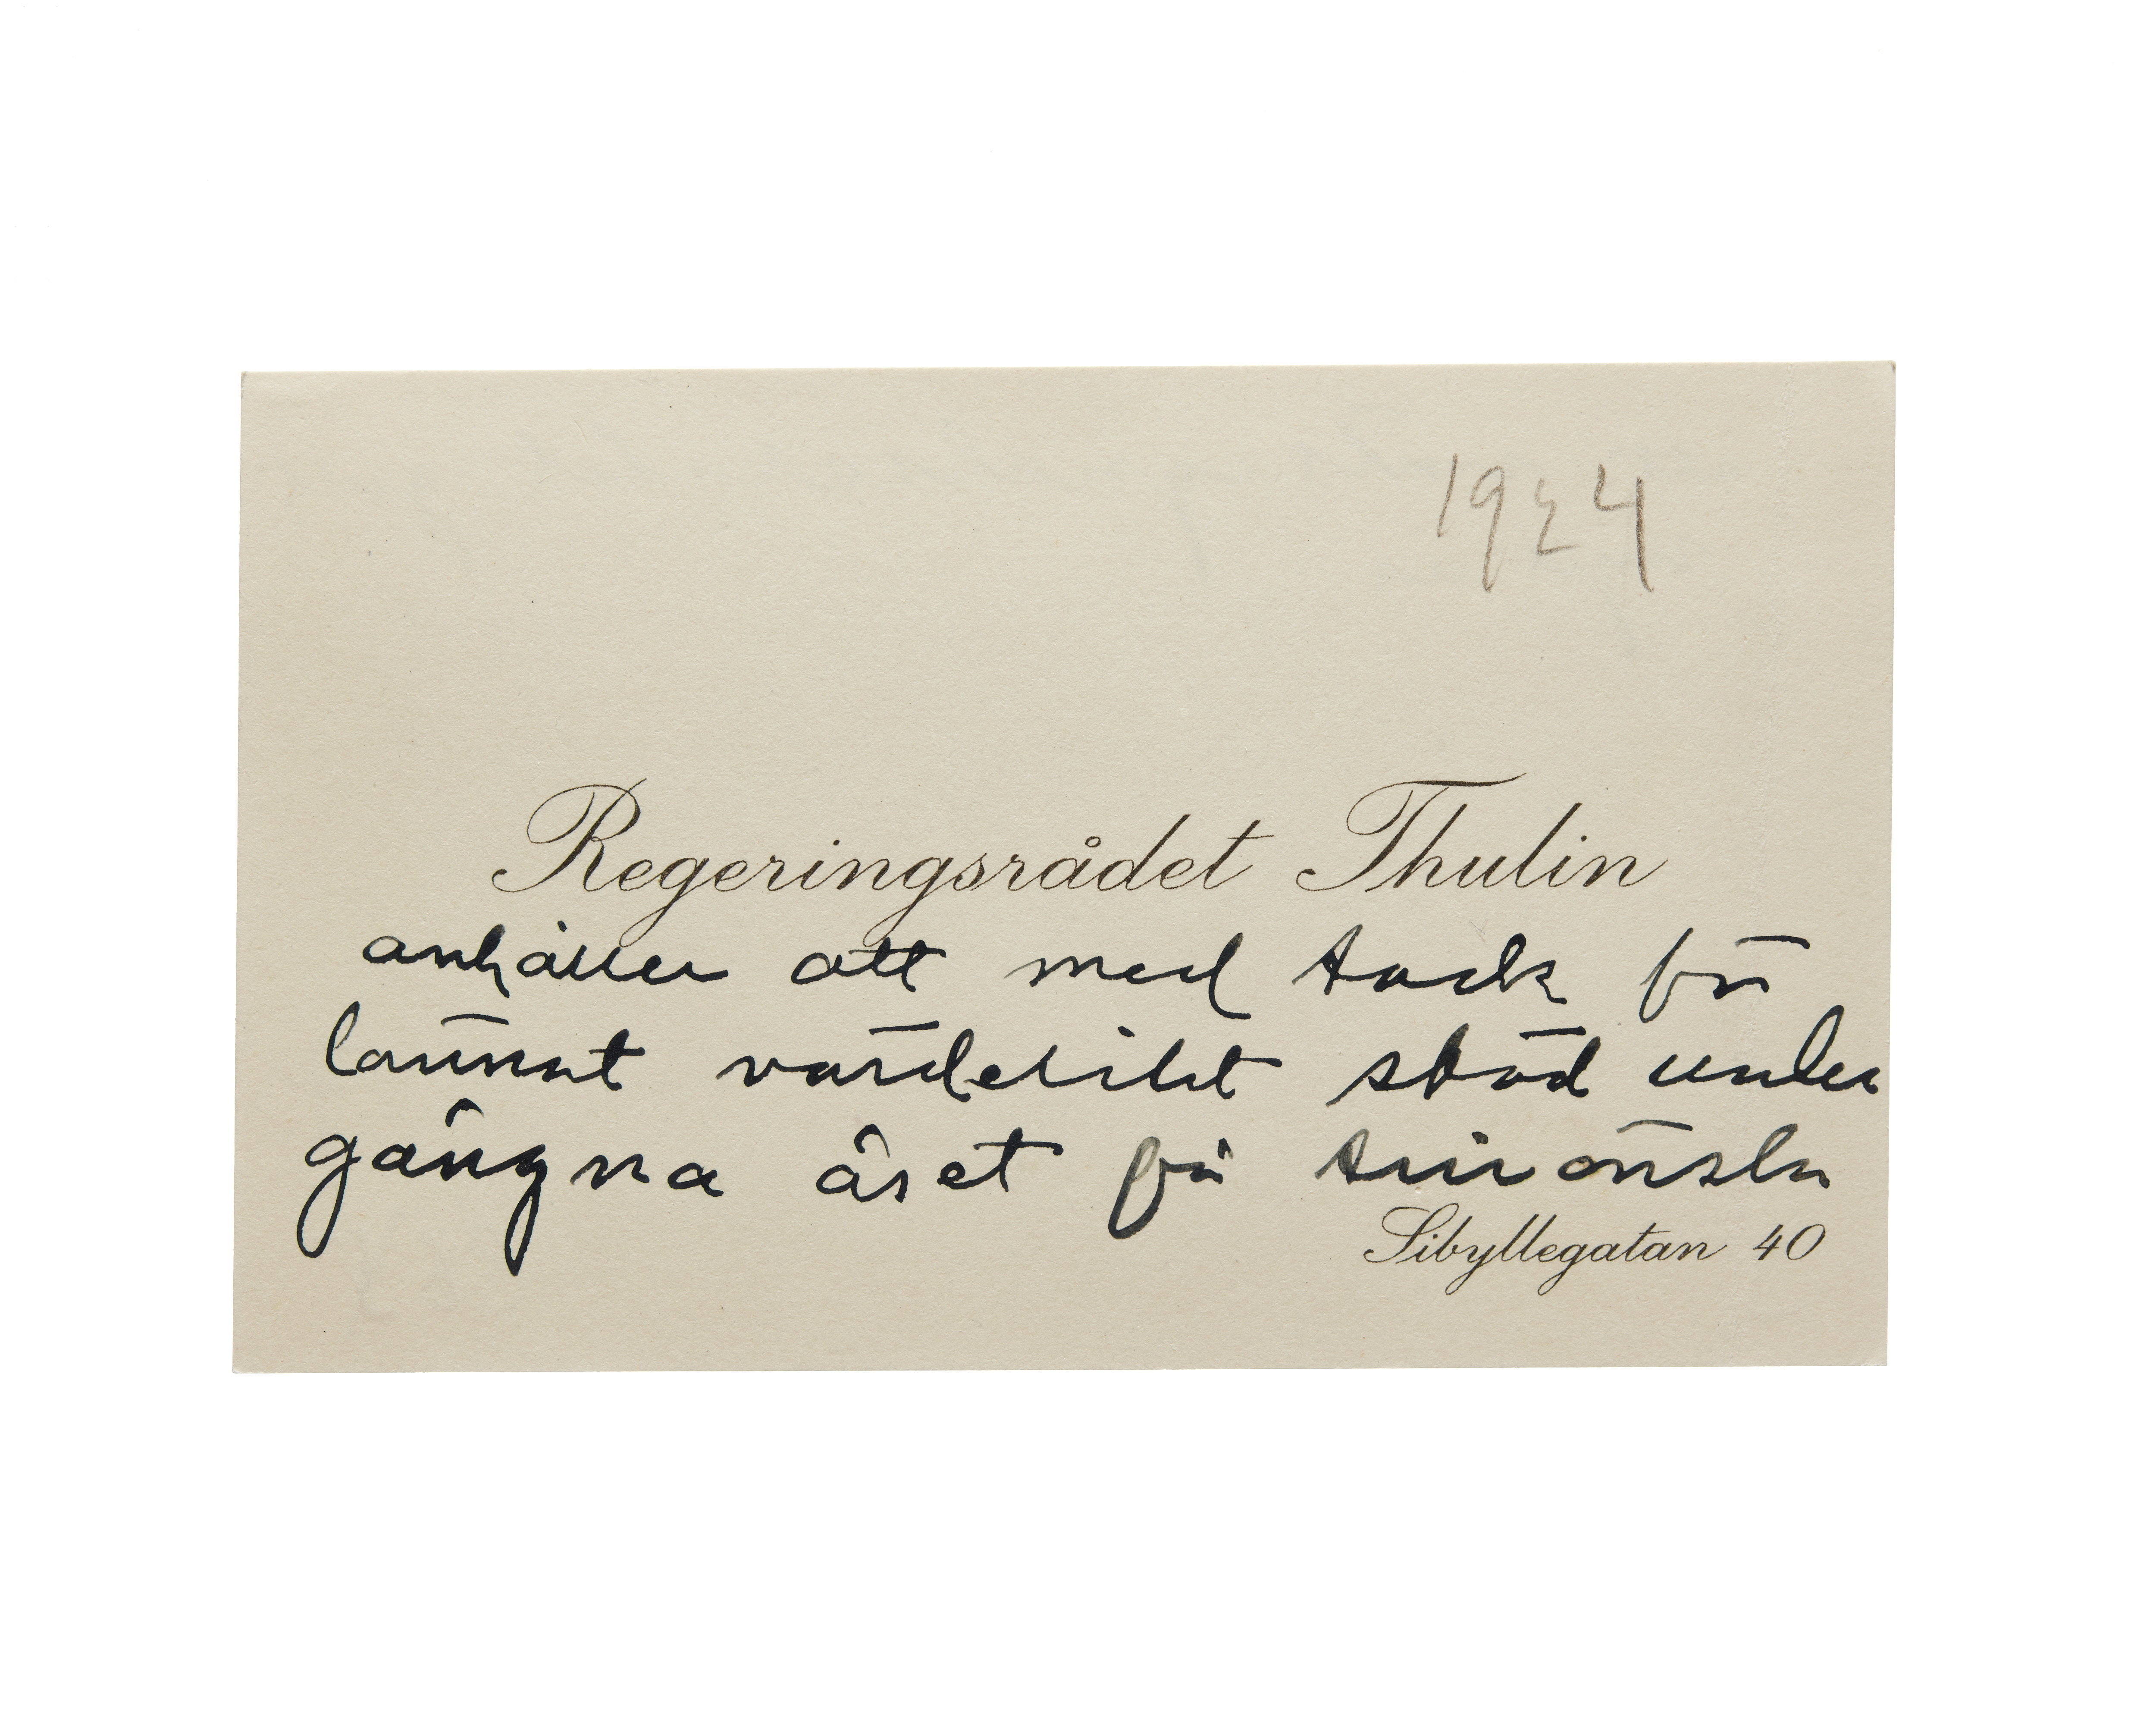 1924
Regeringsrådet Thulin
anhåller att med tack för
lämnat värdefullt stöd under
gångna året få tillönska
Sibyllegatan 40